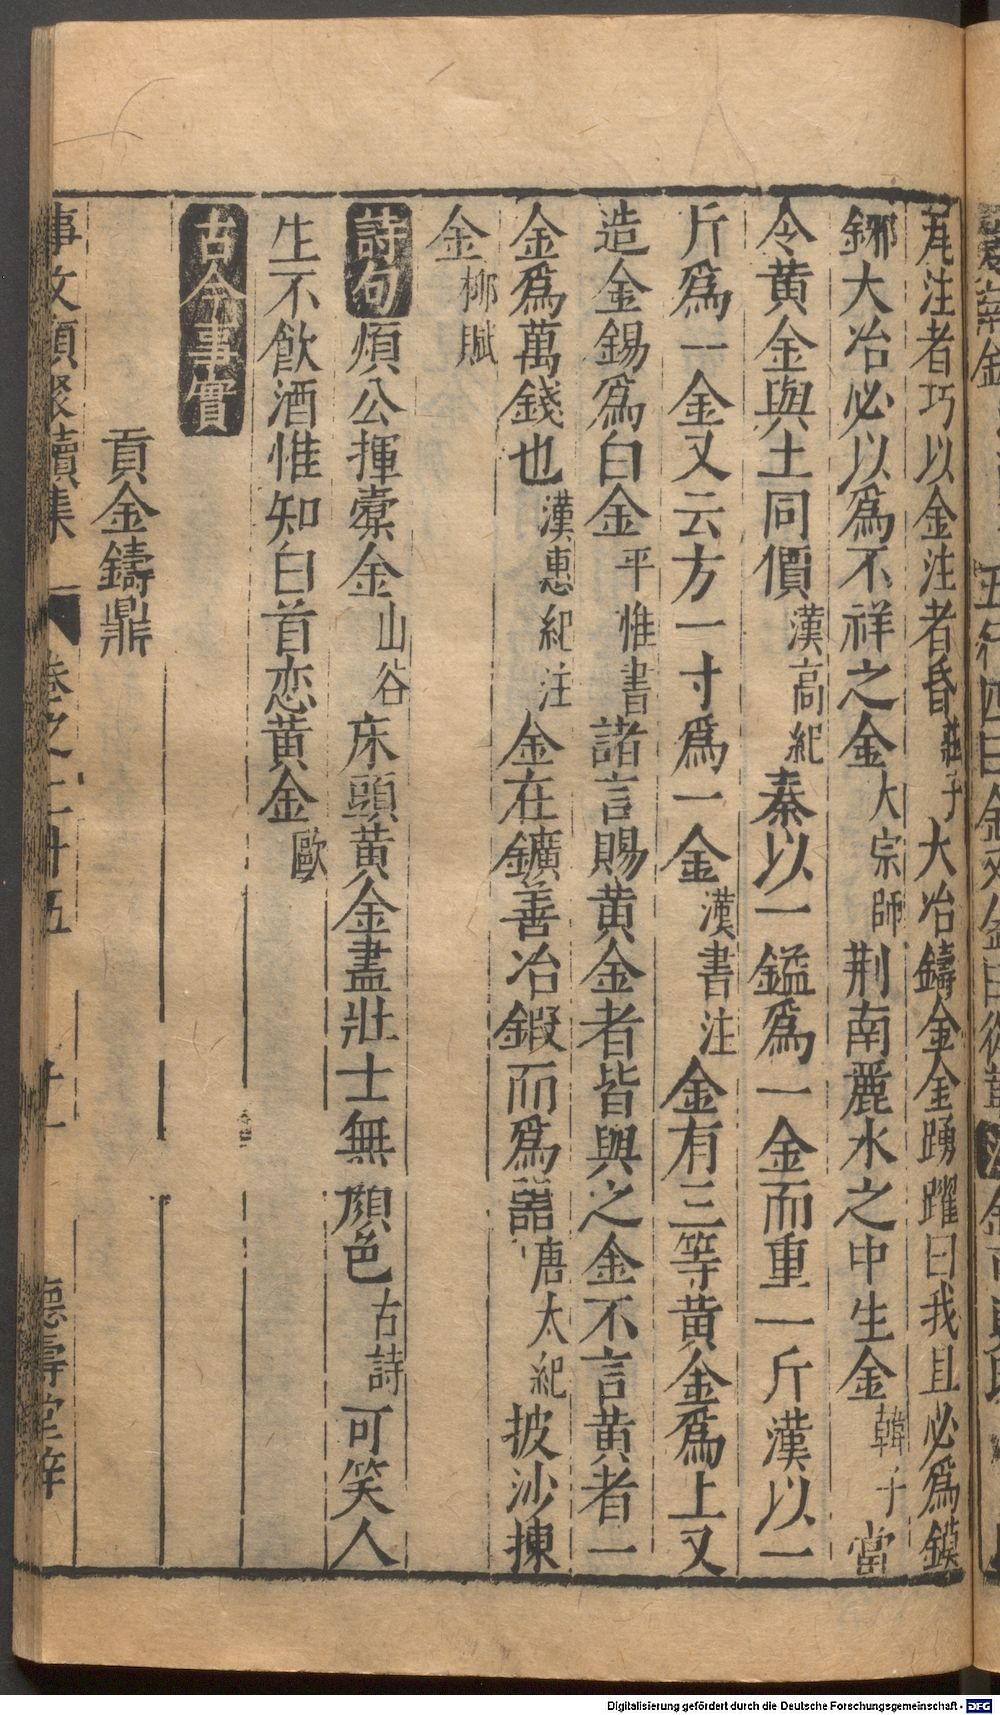 瓦注者巧以金注者昏莊子大冶鑄金金踴躍曰我且必爲鏌
鎁大冶必以爲不祥之金大宗師荆南麗水之中生金韓子當
令黄金與土同價漢高紀秦以一鎰爲一金而重一斤漢以一
斤爲一金又云方一寸爲一金漢書注金有三等黄金爲上又
造金錫爲白金平惟書諸言賜黄金者皆與之金不言黄者一
金爲萬錢也漢惠紀注金在鑛善冶鍛而爲器唐太紀披沙揀
金柳賦
詩句煩公揮橐金山谷床頭黄金盡壯士無顔色古詩可笑人
生不飲酒惟知白首恋黄金歐
古今事實
貢金鑄鼎
事文類聚續集 卷之二十五 十一 德壽堂梓
Digitalisierung gefördert durch die Deutsche Forschungsgemeinschaft - DFG